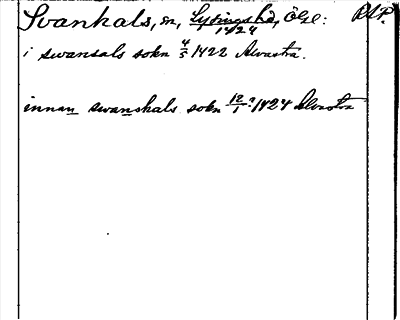 Svanhals, sn, Lysings hd, Ögl: RAP.
1424
i swansals sokn 4/5 1422 Alvastra.
innan swanshals sokn 12/1? 1424 Alvastra